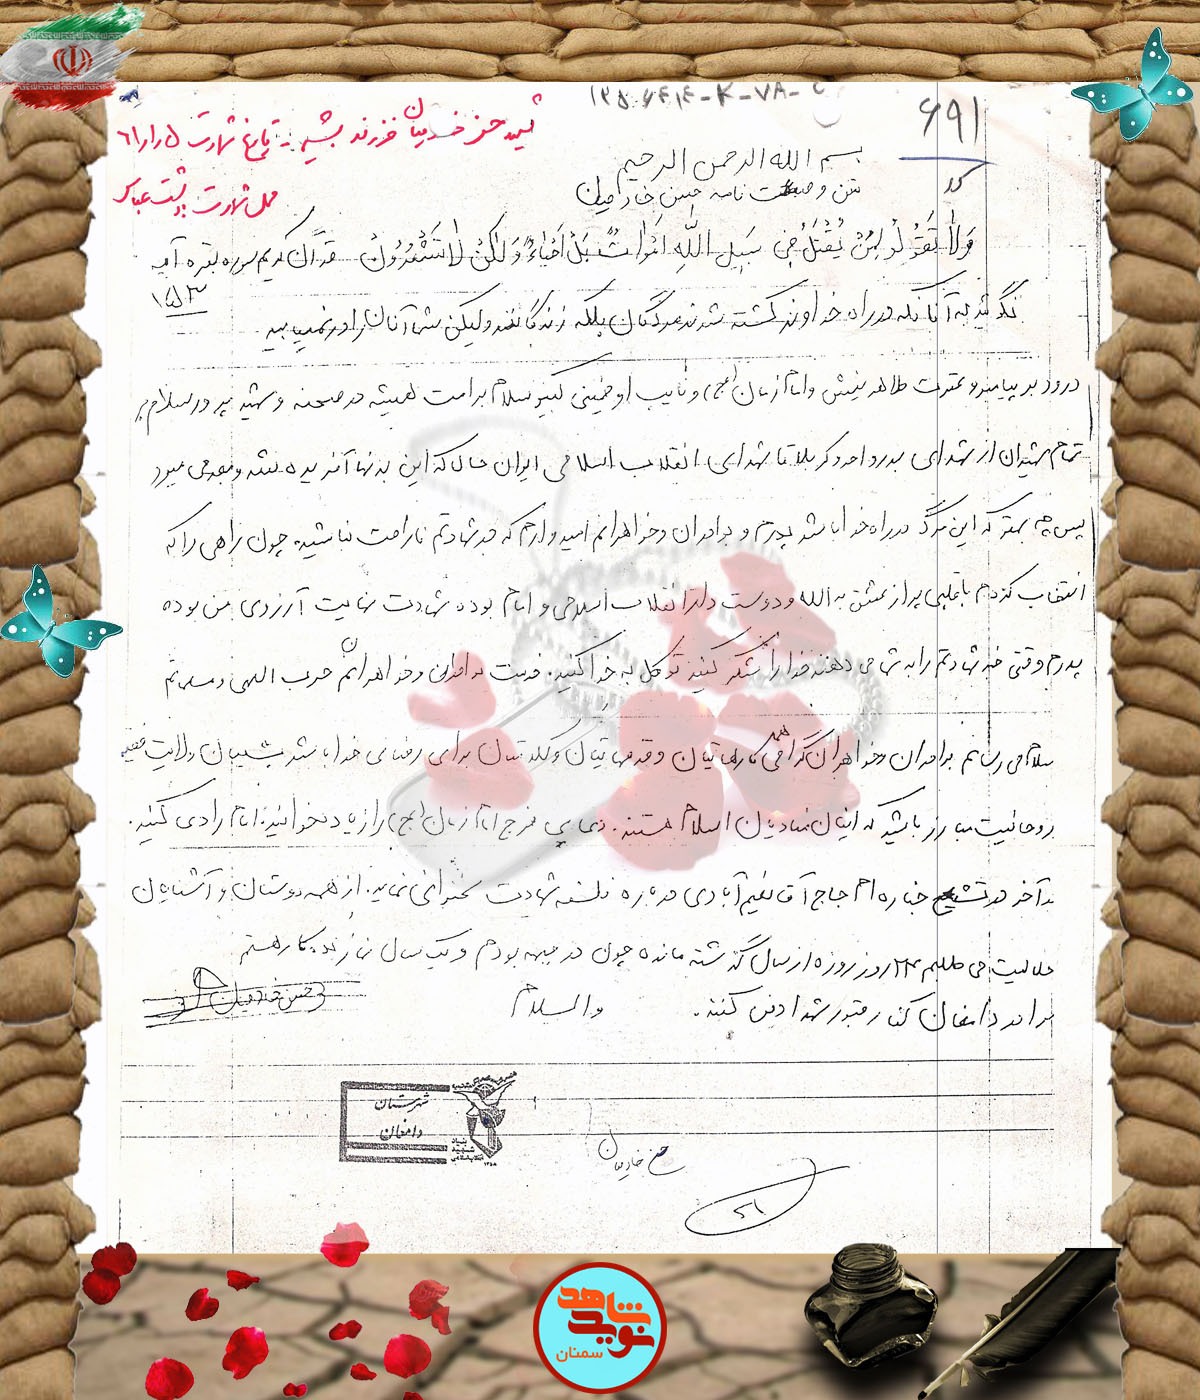 ۶۹۱
کد
شهید حسن خادمیان فرزند بشیر - تاریخ شهادت ۶۱/۱/۵
محل شهادت: دشت عباس
بسم الله الرحمن الرحیم
متن وصیت نامه حسن خادمیان
وَلاٰ تَقُولُوا لِمَنْ یُقْتَلُ فِی سَبِیلِ اللَّهِ اَمْوٰاتٌ بَلْ اَحْیٰاءٌ وَلٰکِنْ لٰا تَشْعُرُونْ قرآن کریم سوره بقره آیه
۱۵۳
نگوئید به آنانکه در راه خداوند کشته شدند مردگان بلکه زندگانند ولیکن شما آنان را در نمییابید
درود بر پیامبر و عترت طاهرینش و امام زمان (عج) و نایب او خمینی کبیر سلام بر امت همیشه در صحنه و شهید پرور سلام بر
تمام شهیدان از شهدای بدر و احد و کربلا تا شهدای انقلاب اسلامی ایران حال که این بدنها آفریده شده و می میرد
پس چه بهتر که این مرگ در راه خدا باشد پدرم و برادران و خواهرانم امیدوارم که در شهادتم ناراحت نباشید چون راهی را که
انتخاب کردم با قلبی پر از عشق به الله و دوست دار انقلاب اسلامی و امام بوده شهادت نهایت آرزوی من بوده
پدرم وقتی خبر شهادتم را به شما می دهند خدا را شکر کنید توکل به خدا کنید. خدمت برادران و خواهرانم حزب اللهی و مسلمانم
سلام می رسانم برادران و خواهران گرامی همه کارهایتان و قدمهایتان و گفتارتان برای رضای خدا باشد پشتیبان ولایت فقیه
روحانیت مبارز باشید که اینان منادیان اسلام هستند. دعا برای فرج امام زمان (عج) را از یاد نبرید امام را دعا کنید.
در آخر در تشییع جنازه ام حاج آقا نعیم آبادی درباره فلسفه شهادت سخنرانی نماید. از همه دوستان و آشنایان
حلالیت می طلبم ۲۴ روز روزه از سال گذشته مانده چون در جبهه بودم و یک سال نماز بدهکار هستم
مرا در دامغان کنار قبور شهدا دفن کنند. والسلام
حسن خادمیان
شهرستان
دامغان
حسن خادمیان
شاهد
نوید
سمنان